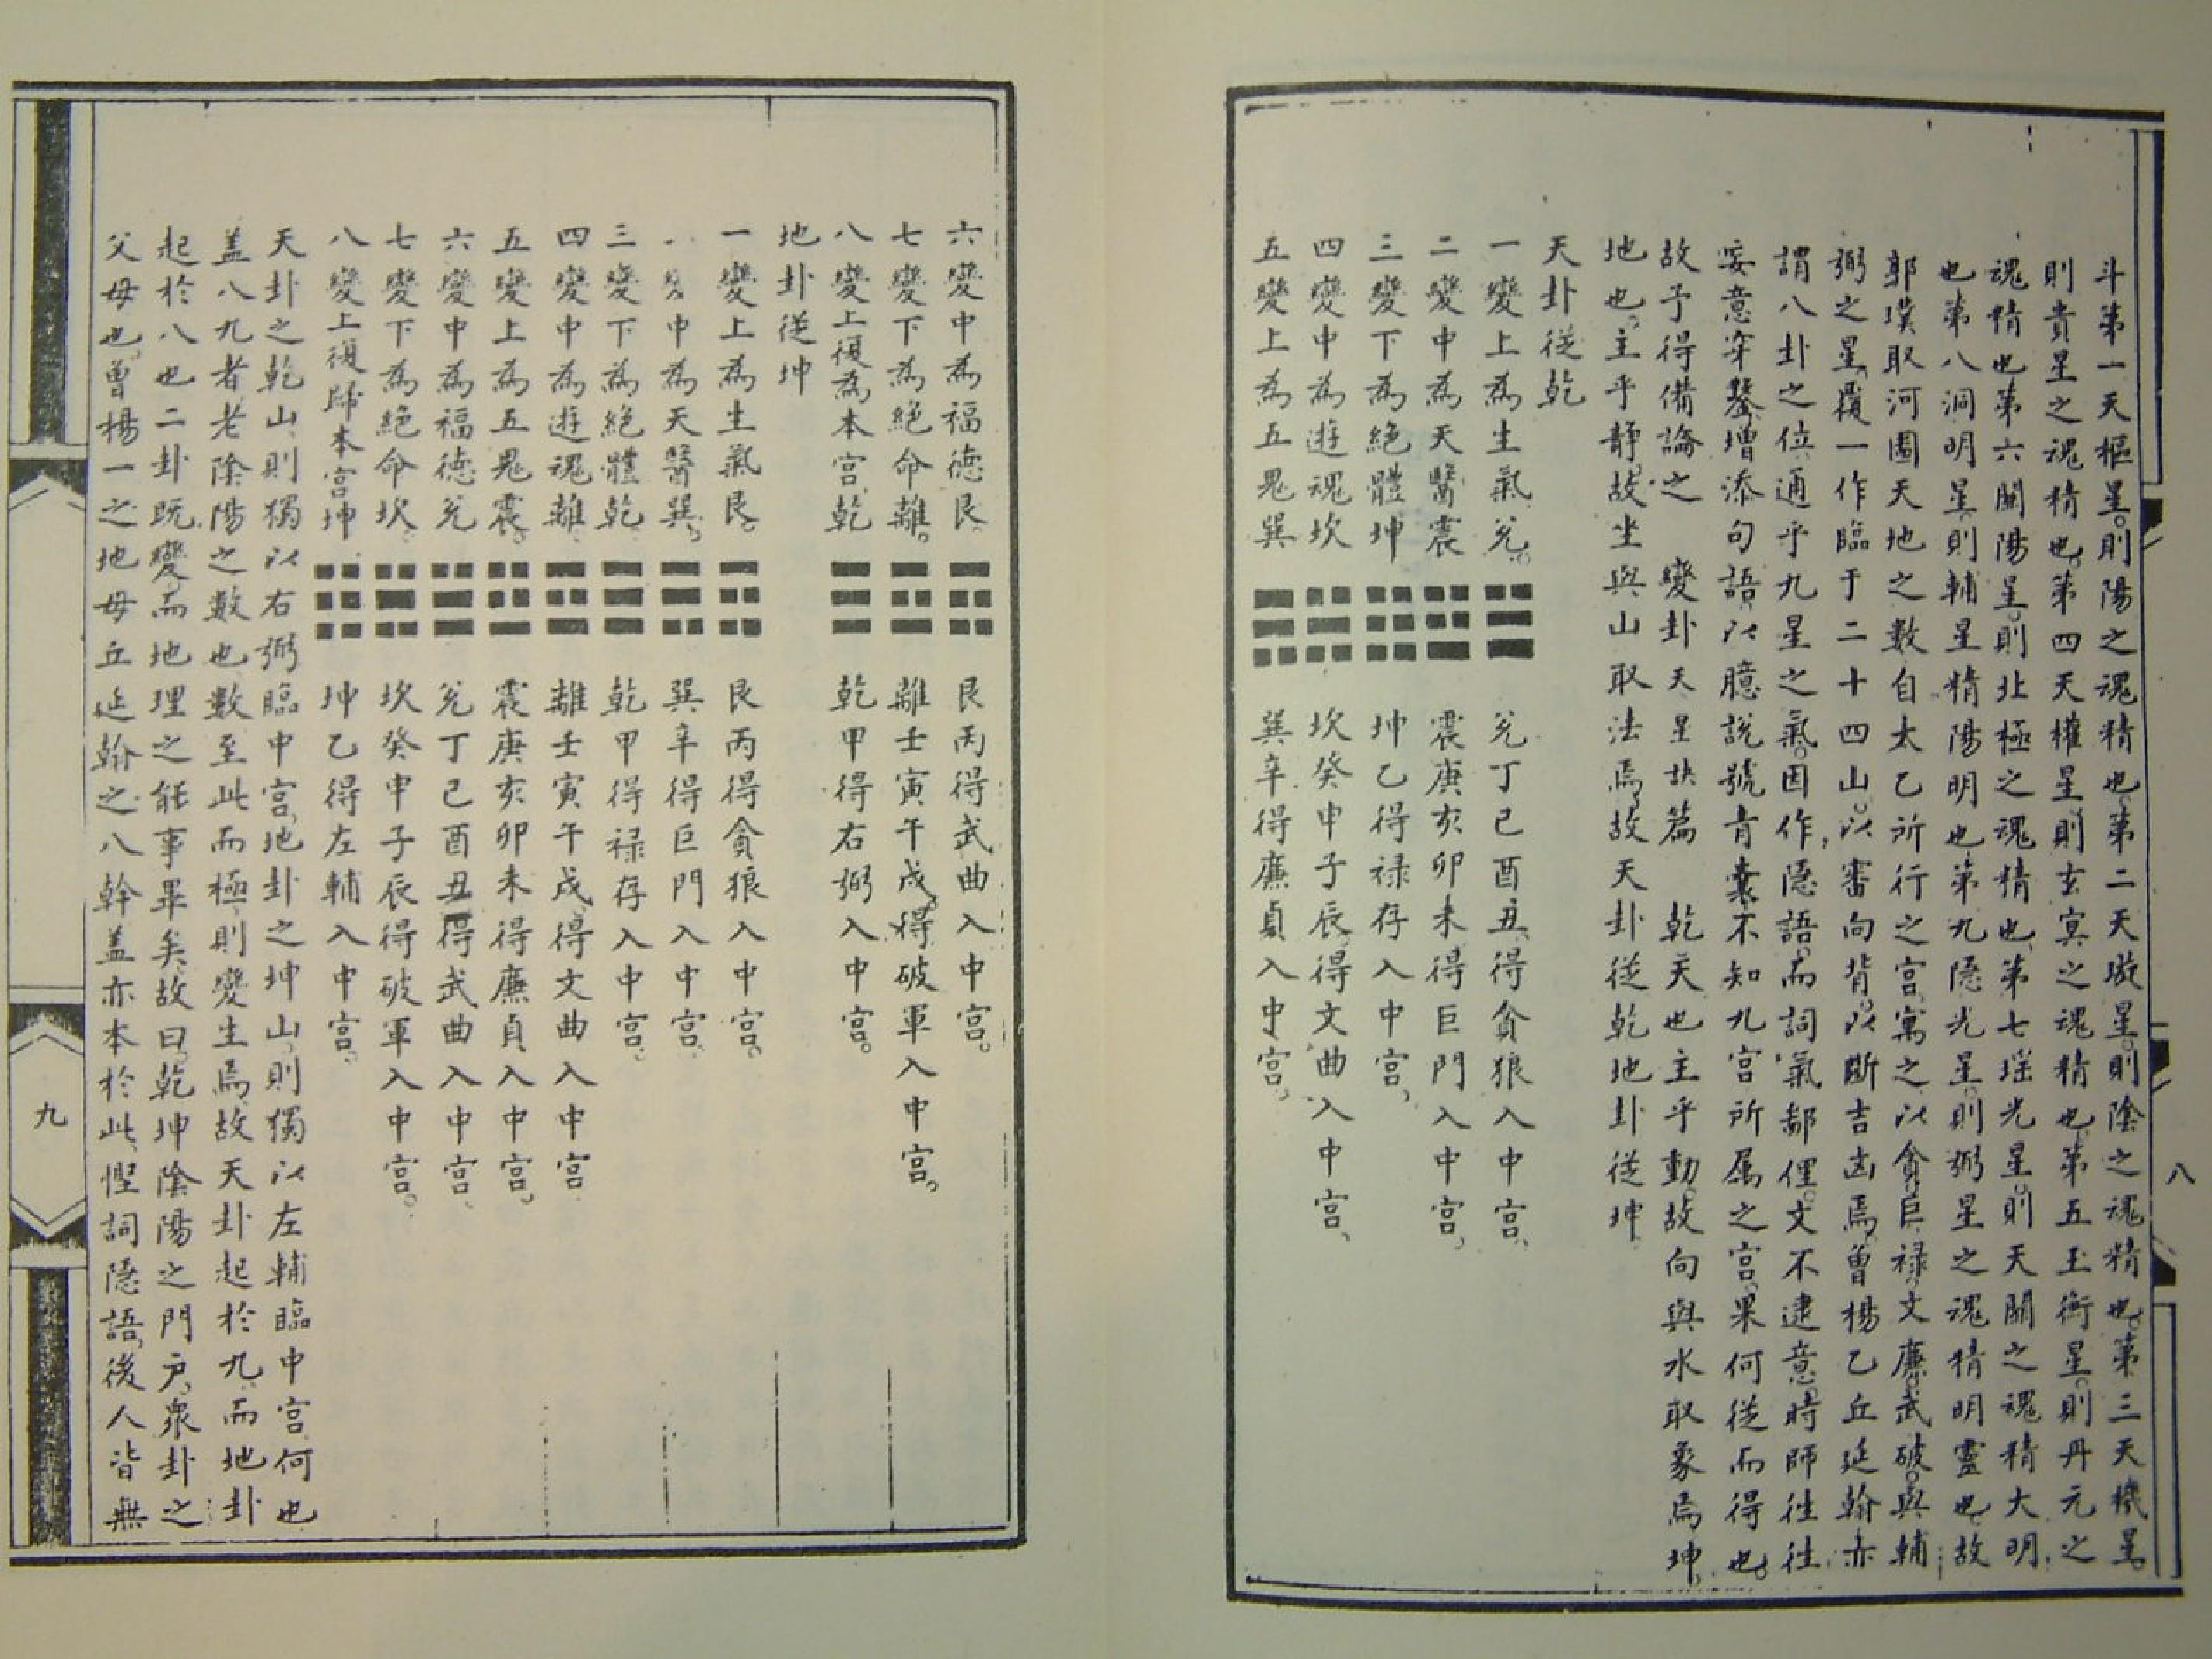 斗第一天樞星。則陽之魂精也。第二天璇星。則陰之魂精也。第三天機星。
則貴星之魂精也。第四天權星。則玄冥之魂精也。第五玉衡星。則丹元之
魂精也。第六闓陽星。則北極之魂精也。第七瑶光星。則天關之魂精大明
也。第八洞明星。則輔星精陽明也。第九隱光星。則弼星之魂精明靈也。故
郭璞取河圖天地之數自太乙所行之宫、寓之以貪巨禄文廉武破。與輔
弼之星、覆一作臨于二十四山。以審向背。以斷吉凶焉。曾楊乙丘延翰亦
謂八卦之位通乎九星之氣。因作隱語。而詞氣鄙俚。文不逮意。時師往往
妄意穿鑿、增添句語、以臆説號青囊、不知九宫所属之宫、果何從而得也。
故子得備論之　變卦天星訣篇　乾天也主乎動。故向與水取象焉。坤、
地也。主乎靜。故坐與山取法焉。故天卦從乾地卦從坤
天卦從乾
一變上為生氣兊。☱兊丁巳酉丑、得貪狼入中宫、
二變中為天醫震☳震庚亥卯未得巨門入中宫、
三變下為絕體坤☷坤乙得禄存入中宫、
四變中為遊魂坎☵坎癸申子辰、得文曲入中宫、
五變上為五鬼巽☴巽辛得廉貞入中宫、
八
六變中為福德艮☶艮丙得武曲入中宫。
七變下為絕命離。☲離壬寅午戌。得破軍入中宫。
八變上復為本宫乾☰乾甲得右弼入中宫。
地卦從坤
一變上為生氣艮。☶艮丙得貪狼入中宫。
中為天醫巽、☴巽辛得巨門入中宫、
三變下為絕體乾☰乾甲得禄存入中宫、
四變中為遊魂離☲離壬寅午戌、得文曲入中宫
五變上為五鬼震、☳震庚亥卯未得廉貞入中宫、
六變中為福德兊☱兊丁巳酉丑得武曲入中宫、
七變下為絕命坎。☵坎癸申子辰得破軍入中宫。
八變上復歸本宫坤☷坤乙得左輔入中宫、
天卦之乾山、則獨以右弼臨中宫、地卦之坤山、則獨以左輔臨中宫何也
盖八九者、老陰陽之數也、數至此而極、則變生焉、故天卦起於九、而地卦
起於八也二卦既變、而地理之能事畢矣、故曰、乾坤陰陽之門户、衆卦之
父母也、曾楊一之地母丘延翰之八幹盖亦本於此、慳詞隱語、後人皆無
九